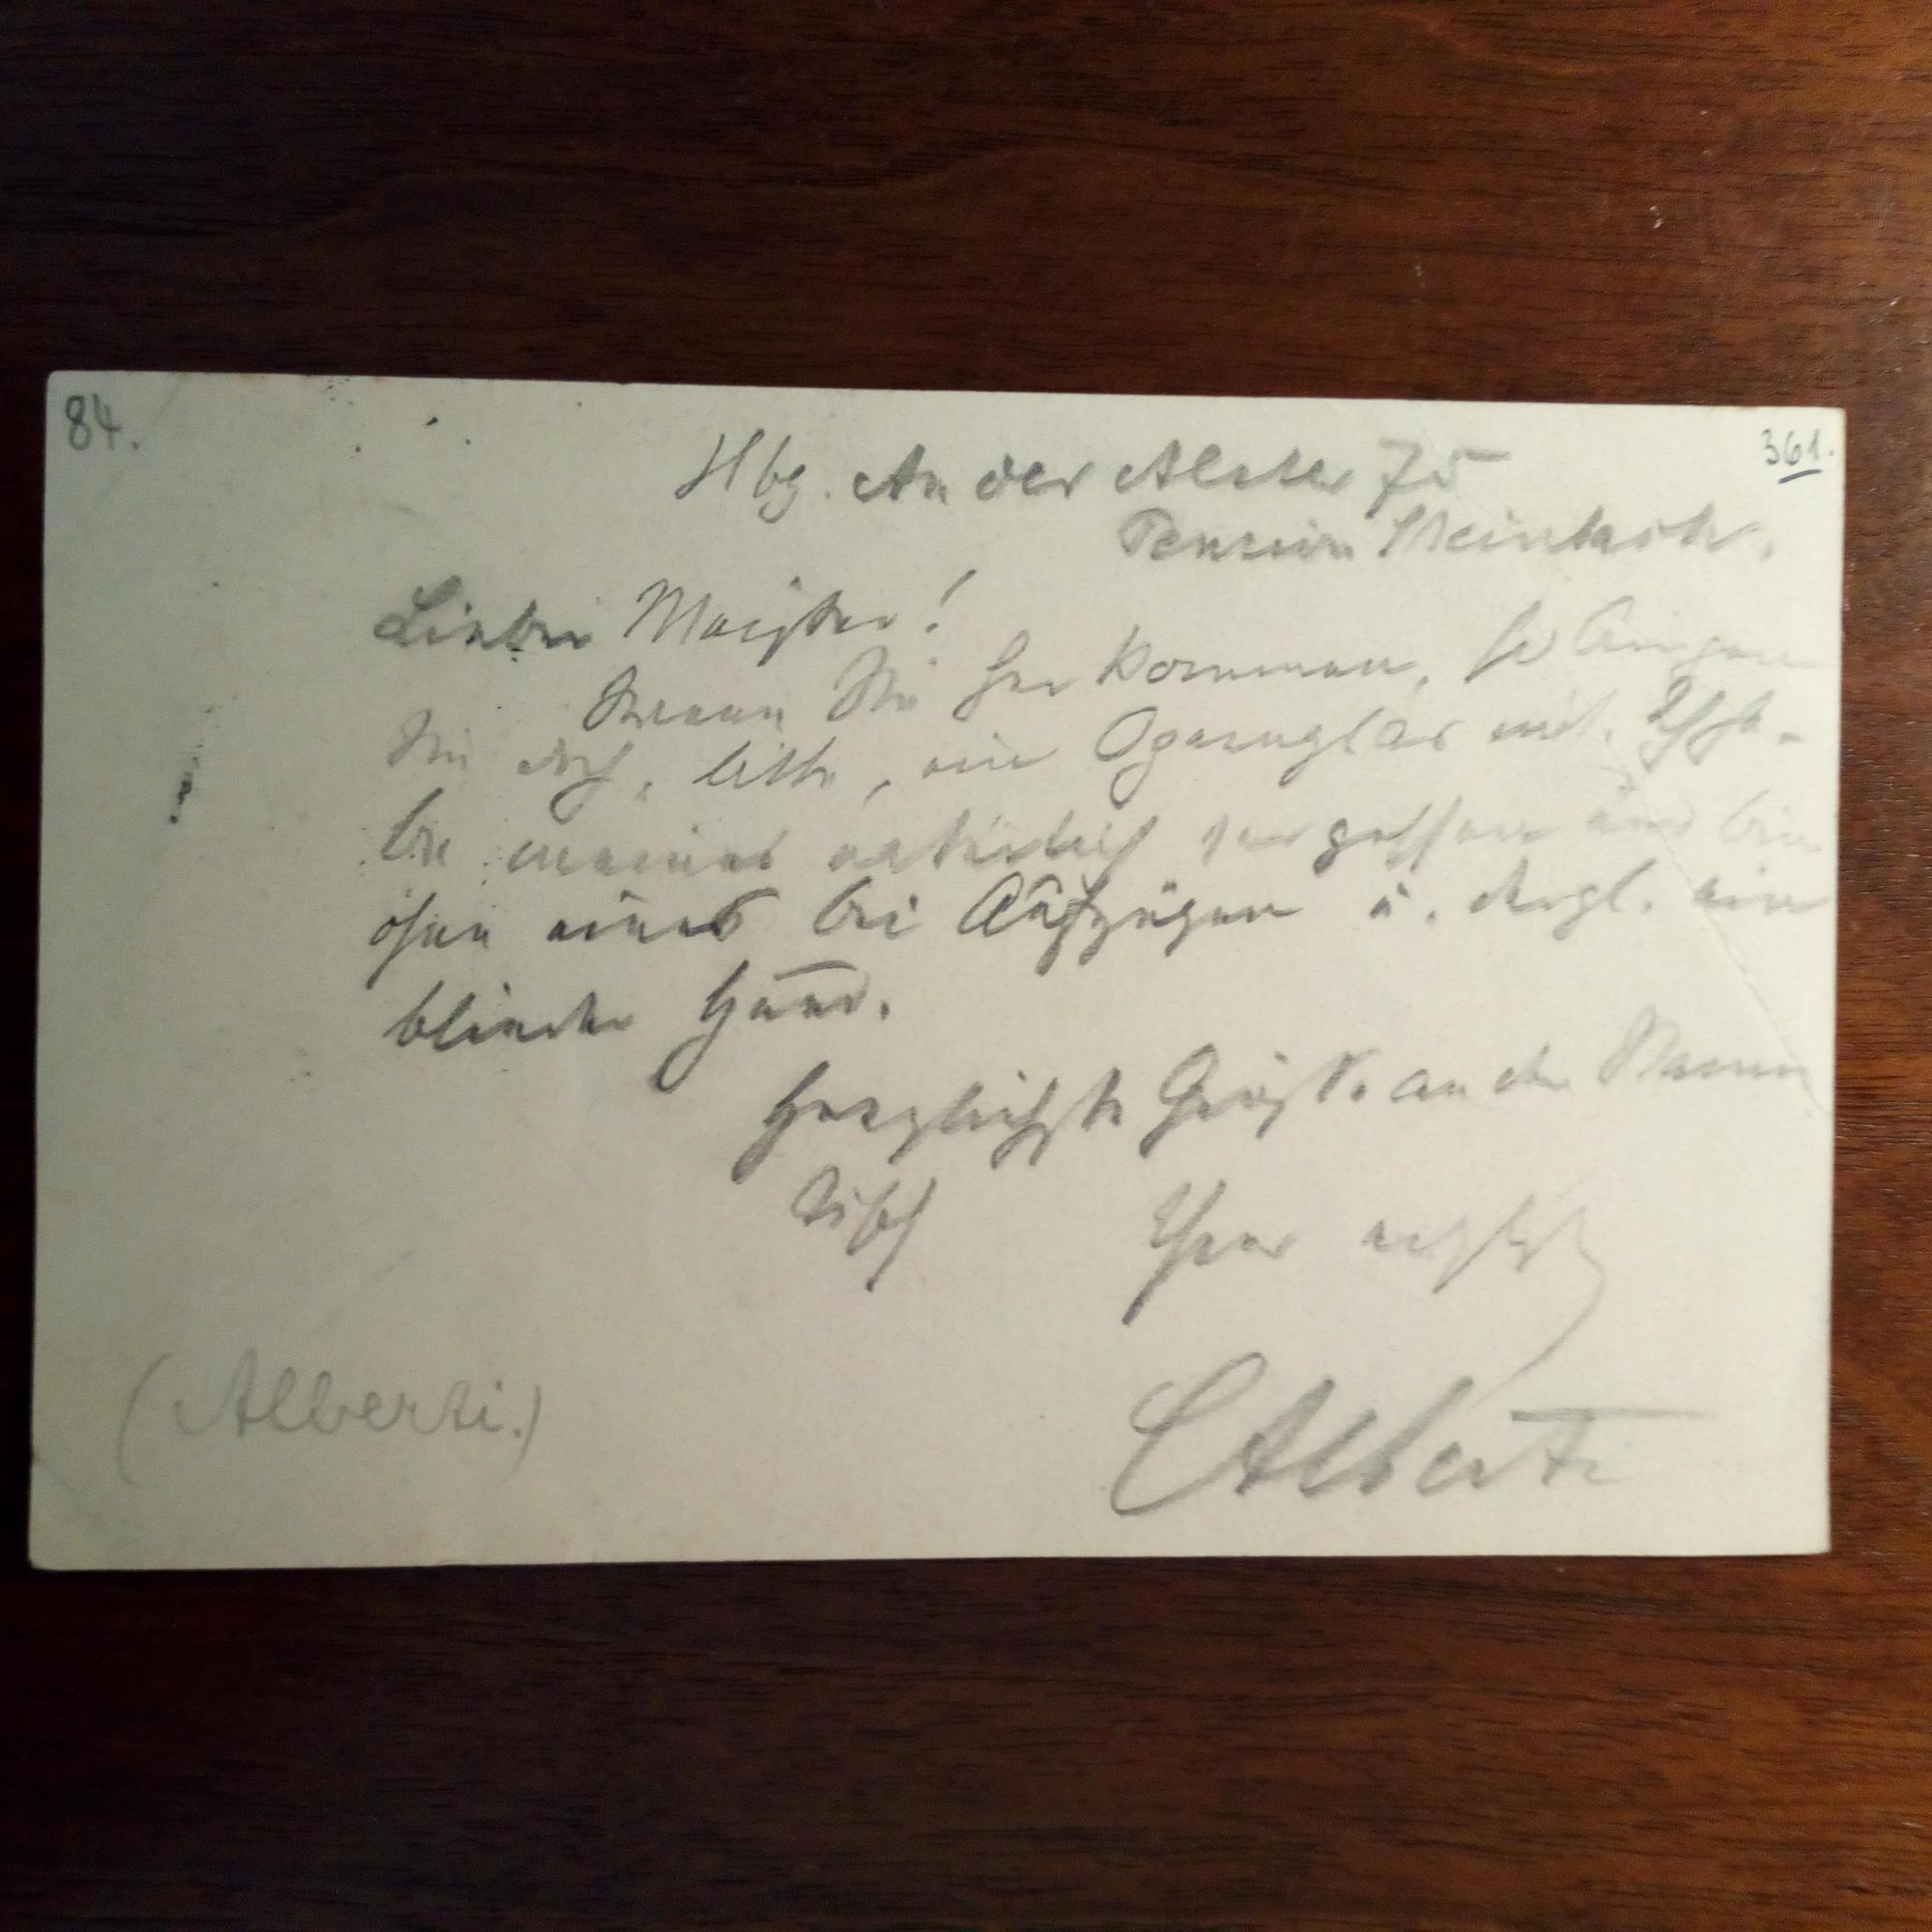 84.
361.
Hbg. An der Alster 75
Pension
Lieber Meister!
Wenn Sie her kommen, so bringen
Sie doch, bitte, ein Opernglas mit. Ich ha-
be meines natürlich vergessen und bin
ohne eines bei Aufzügen u. dergl. ein
blinder Hund.
Herzlichste Grüße an den Stamm
tisch
Ihr
CAlberti
(Alberti.)